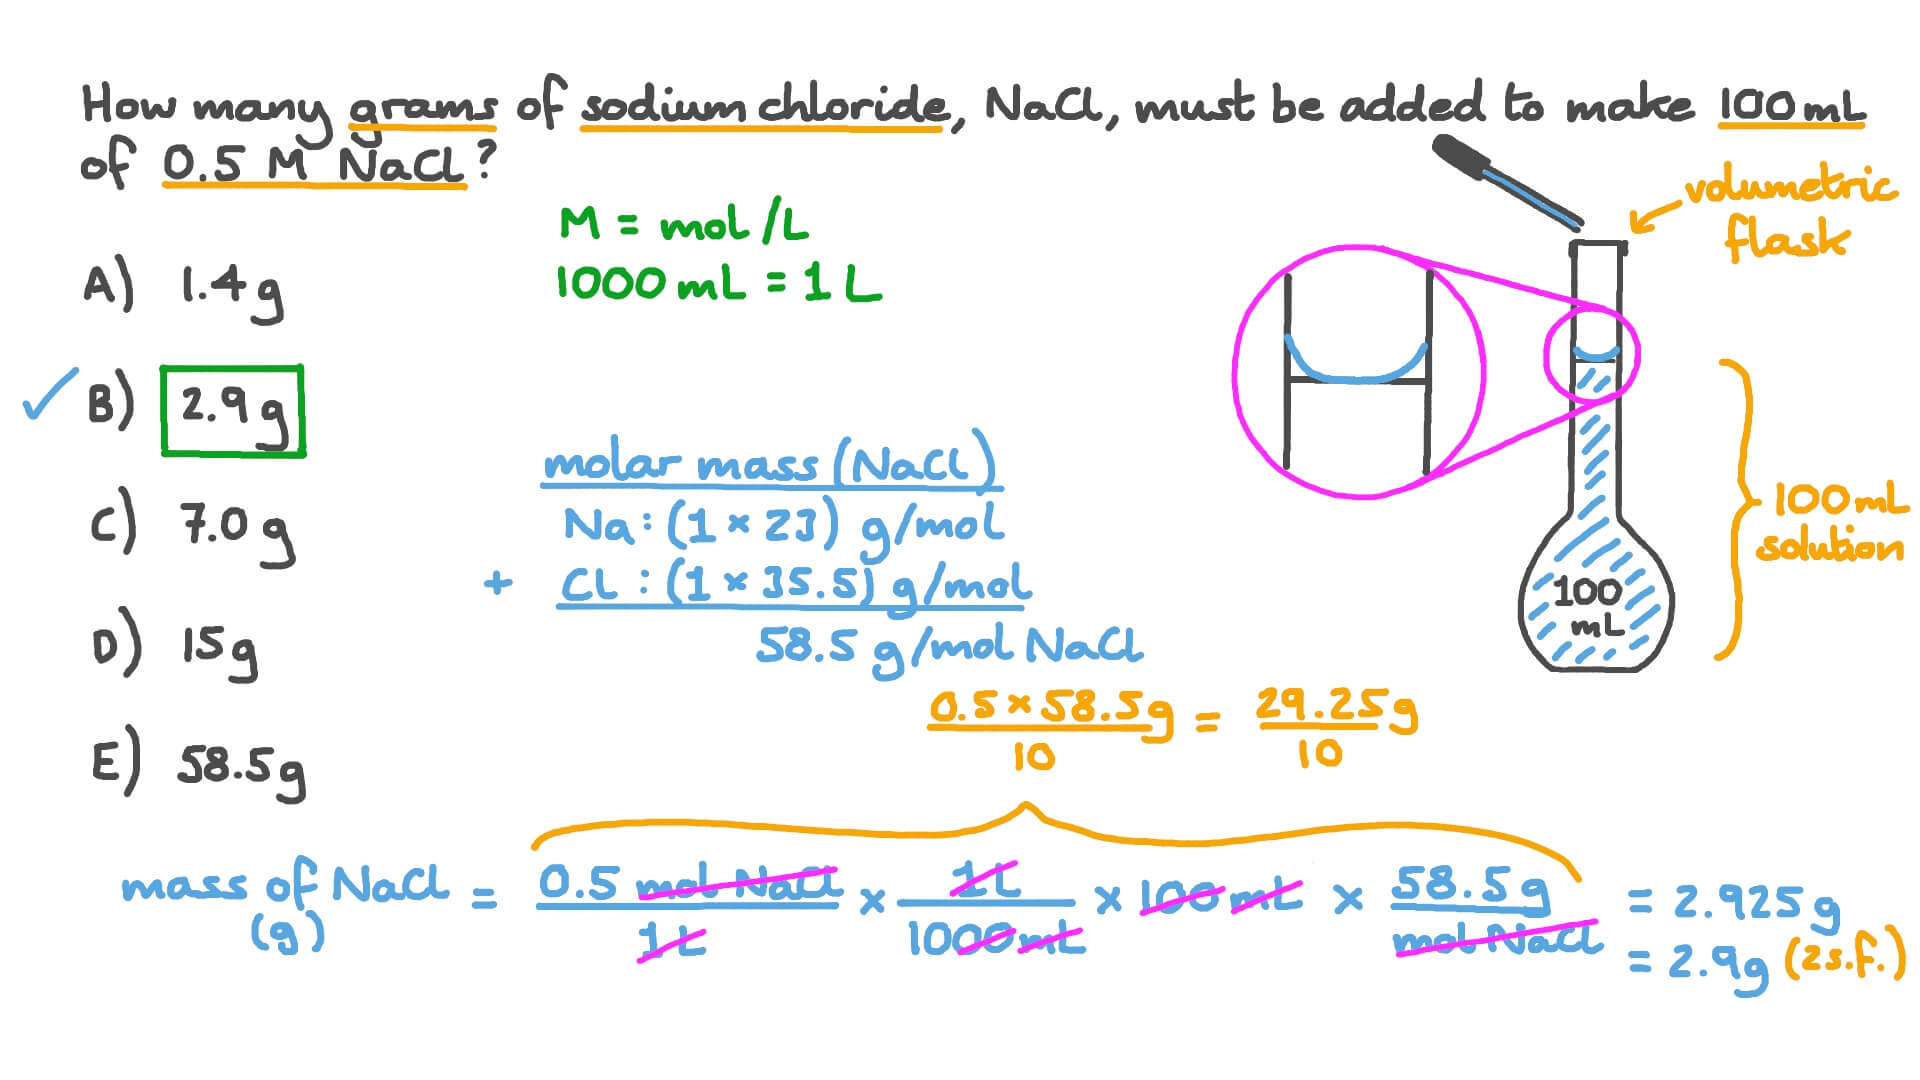 How many grams of sodium chloride, NaCl, must be added to make 100 mL
of 0.5 M NaCl?
M = mol/L
1000 mL = 1 L
volumetric
flask
A) 1.4 g
✓ B) 2.9 g
C) 7.0 g
D) 15 g
E) 58.5 g
molar mass (NaCl)
Na : (1 × 23) g/mol
+ Cl : (1 × 35.5) g/mol
58.5 g/mol NaCl
100 mL
solution
100
mL
0.5 × 58.5 g = 29.25 g
10 10
mass of NaCl = 0.5 mol NaCl × 1 L × 100 mL × 58.5 g = 2.925 g
(g) 1 L 1000 mL mol NaCl = 2.9 g (2 s.f.)